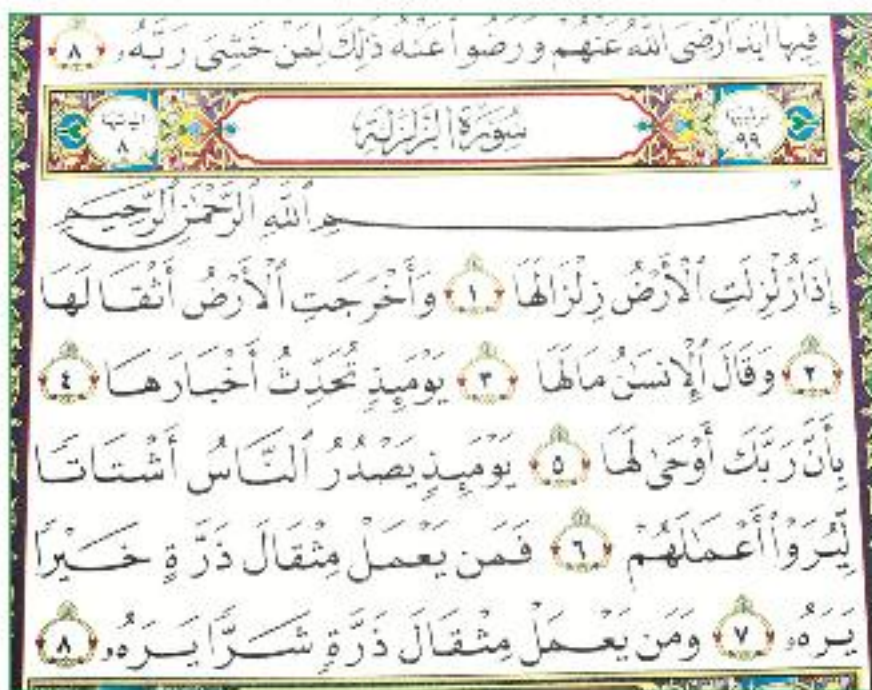 فِيهَآ أَبَدًا رَّضِيَ ٱللَّهُ عَنْهُمْ وَرَضُوا۟ عَنْهُ ذَٰلِكَ لِمَنْ خَشِيَ رَبَّهُۥ ٨
ترتيبها ٩٩ سُورَةُ الزَّلْزَلَةِ آياتها ٨
بِسْمِ ٱللَّهِ ٱلرَّحْمَٰنِ ٱلرَّحِيمِ
إِذَا زُلْزِلَتِ ٱلْأَرْضُ زِلْزَالَهَا ١ وَأَخْرَجَتِ ٱلْأَرْضُ أَثْقَالَهَا
٢ وَقَالَ ٱلْإِنسَٰنُ مَا لَهَا ٣ يَوْمَئِذٍ تُحَدِّثُ أَخْبَارَهَا ٤
بِأَنَّ رَبَّكَ أَوْحَىٰ لَهَا ٥ يَوْمَئِذٍ يَصْدُرُ ٱلنَّاسُ أَشْتَاتًا
لِّيُرَوْا۟ أَعْمَٰلَهُمْ ٦ فَمَن يَعْمَلْ مِثْقَالَ ذَرَّةٍ خَيْرًا
يَرَهُۥ ٧ وَمَن يَعْمَلْ مِثْقَالَ ذَرَّةٍ شَرًّا يَرَهُۥ ٨